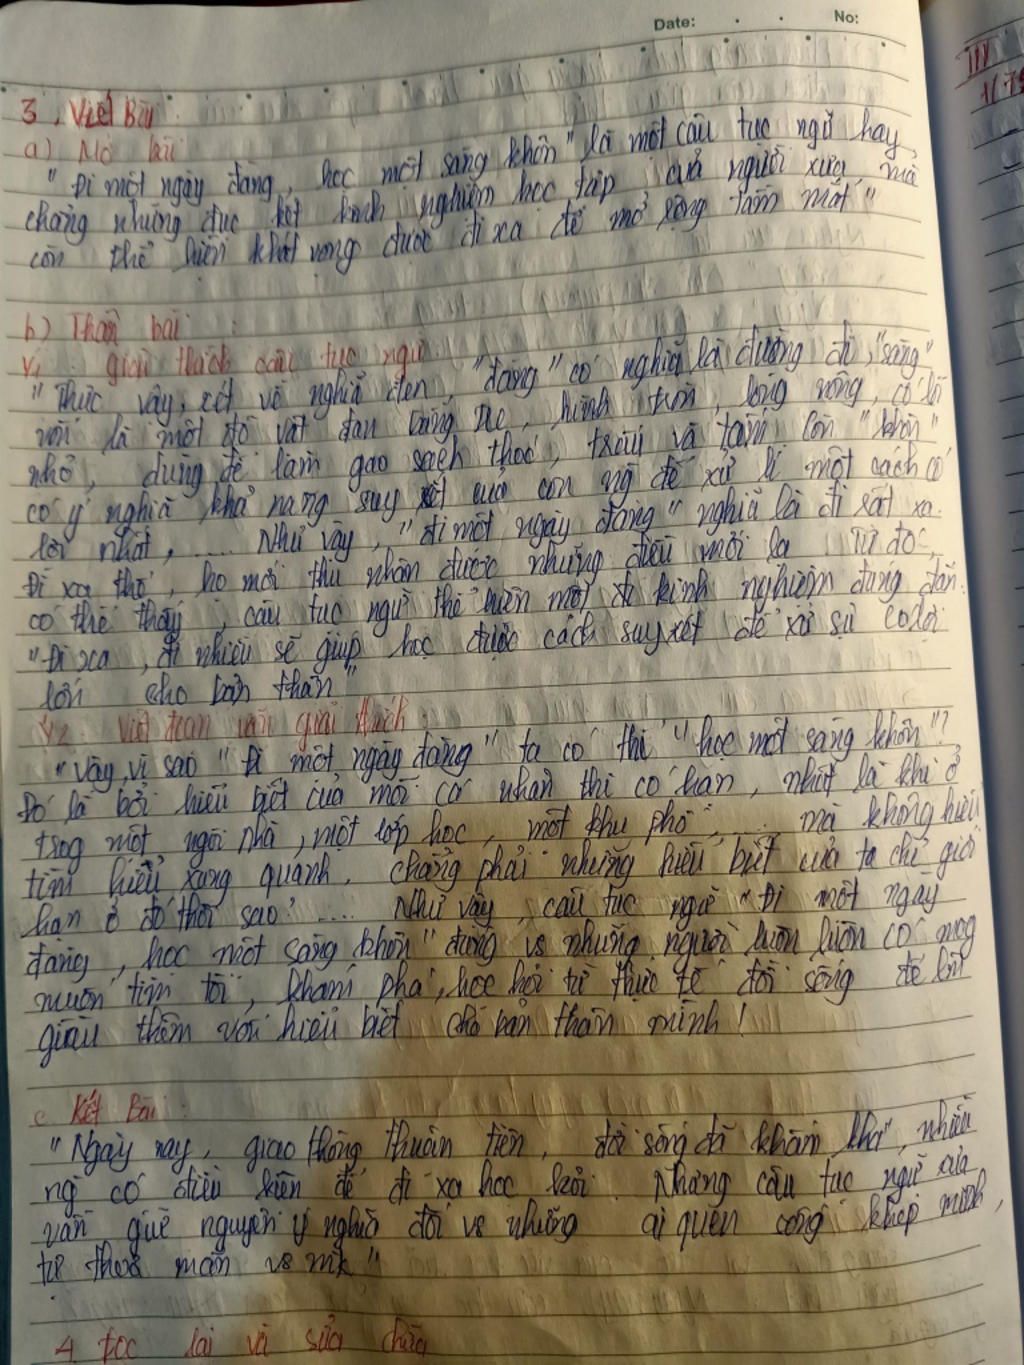 Date: No:
3, Viết Bài
a) Mở bài
" Đi một ngày đàng, học một sàng khôn" là một câu tục ngữ hay,
chẳng những đục kết kinh nghiệm học tập của người xưa, mà
còn thể hiện khát vọng được đi xa để mở rộng tầm mắt"
b) Thân bài :
giải thích câu tục ngữ
"Thực vậy, xét về nghĩa đen, "đàng" có nghĩa là đường đi, "sàng"
vốn là một đồ vật đan bằng tre, hình tròn, lòng nông, có lỗ
nhỏ, dùng để làm gạo sạch thóc, trấu và tấm. Còn "khôn"
có ý nghĩa khả năng suy xét của con ng để xử lí một cách có
lợi nhất, .... Như vậy, "đi một ngày đàng" nghĩa là đi rất xa.
Đi xa thế, họ mới thu nhận được những điều mới lạ Từ đó,
có thể thấy, câu tục ngữ thể hiện một kinh nghiệm đúng đắn.
"Đi xa, đi nhiều sẽ giúp học được cách suy xét để xử sự có lợi
lớn cho bản thân"
Viết đoạn văn giải thích :
"Vậy, vì sao "Đi một ngày đàng" ta có thể "học một sàng khôn"?
Đó là bởi hiểu biết của mỗi cá nhân thì có hạn, nhất là khi ở
trog một ngôi nhà, một lớp học, một khu phố, .... mà không hiểu
tìm hiểu xung quanh. chẳng phải những hiểu biết của ta chỉ giới
hạn ở đó thôi sao? .... Như vậy, câu tục ngữ "Đi một ngày
đàng, học một sàng khôn" đúng vs những người luôn luôn có mog
muốn tìm tòi, khám phá, học hỏi từ thực tế đời sống để làm
giàu thêm vốn hiểu biết cho bản thân mình!
c Kết Bài :
"Ngày nay, giao thông thuận tiện, đời sống đã khấm khá, nhiều
ng có điều kiện để đi xa học hỏi. Nhưng câu tục ngữ của
vẫn guê nguyên ý nghĩa đối vs những ai quen sống khép mình,
tự thoả mãn vs mk"
4 Đọc lại và sửa chữa